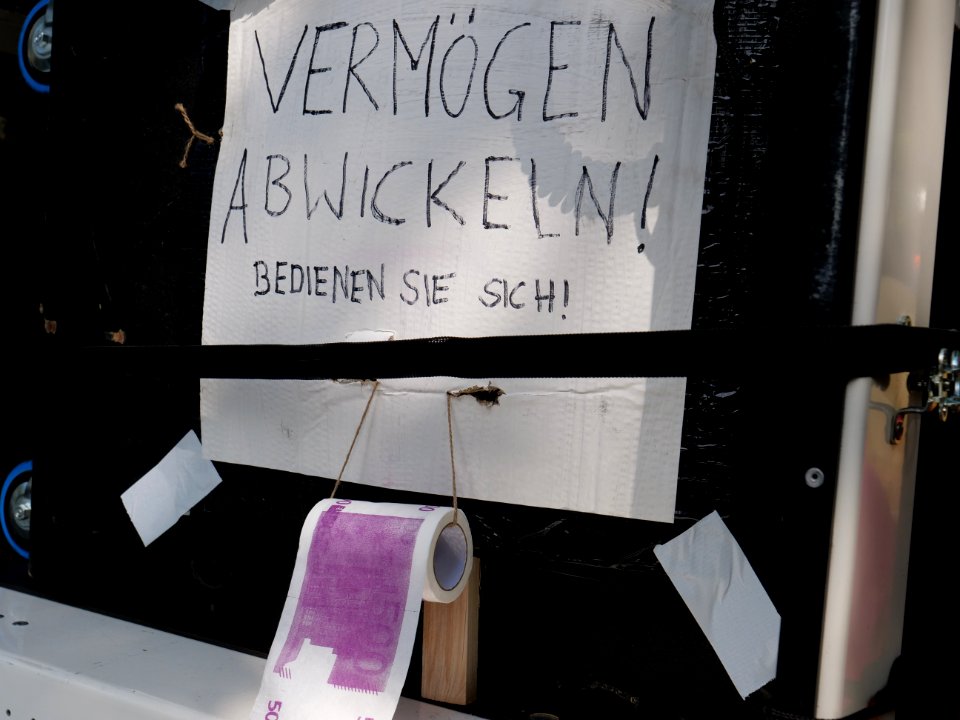 VERMÖGEN
ABWICKELN!
BEDIENEN SIE SICH!
500
50